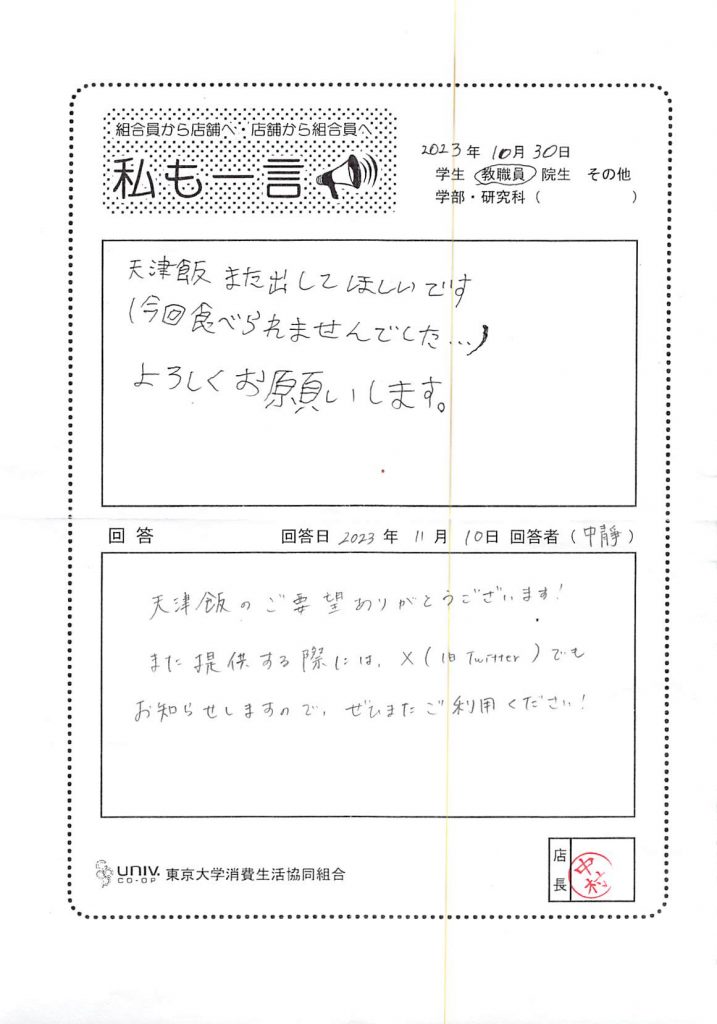 組合員から店舗へ・店舗から組合員へ
私も一言
2023年 10月 30日
学生 教職員 院生 その他
学部・研究科（ ）
天津飯 また出してほしいです
（今回食べられませんでした…）
よろしくお願いします。
回答 回答日 2023 年 11 月 10日 回答者（中静）
天津飯のご要望ありがとうございます！
また提供する際には、X（旧Twitter）でも
お知らせしますので、ぜひまたご利用ください！
UNIV. CO-OP 東京大学消費生活協同組合
店長
中村